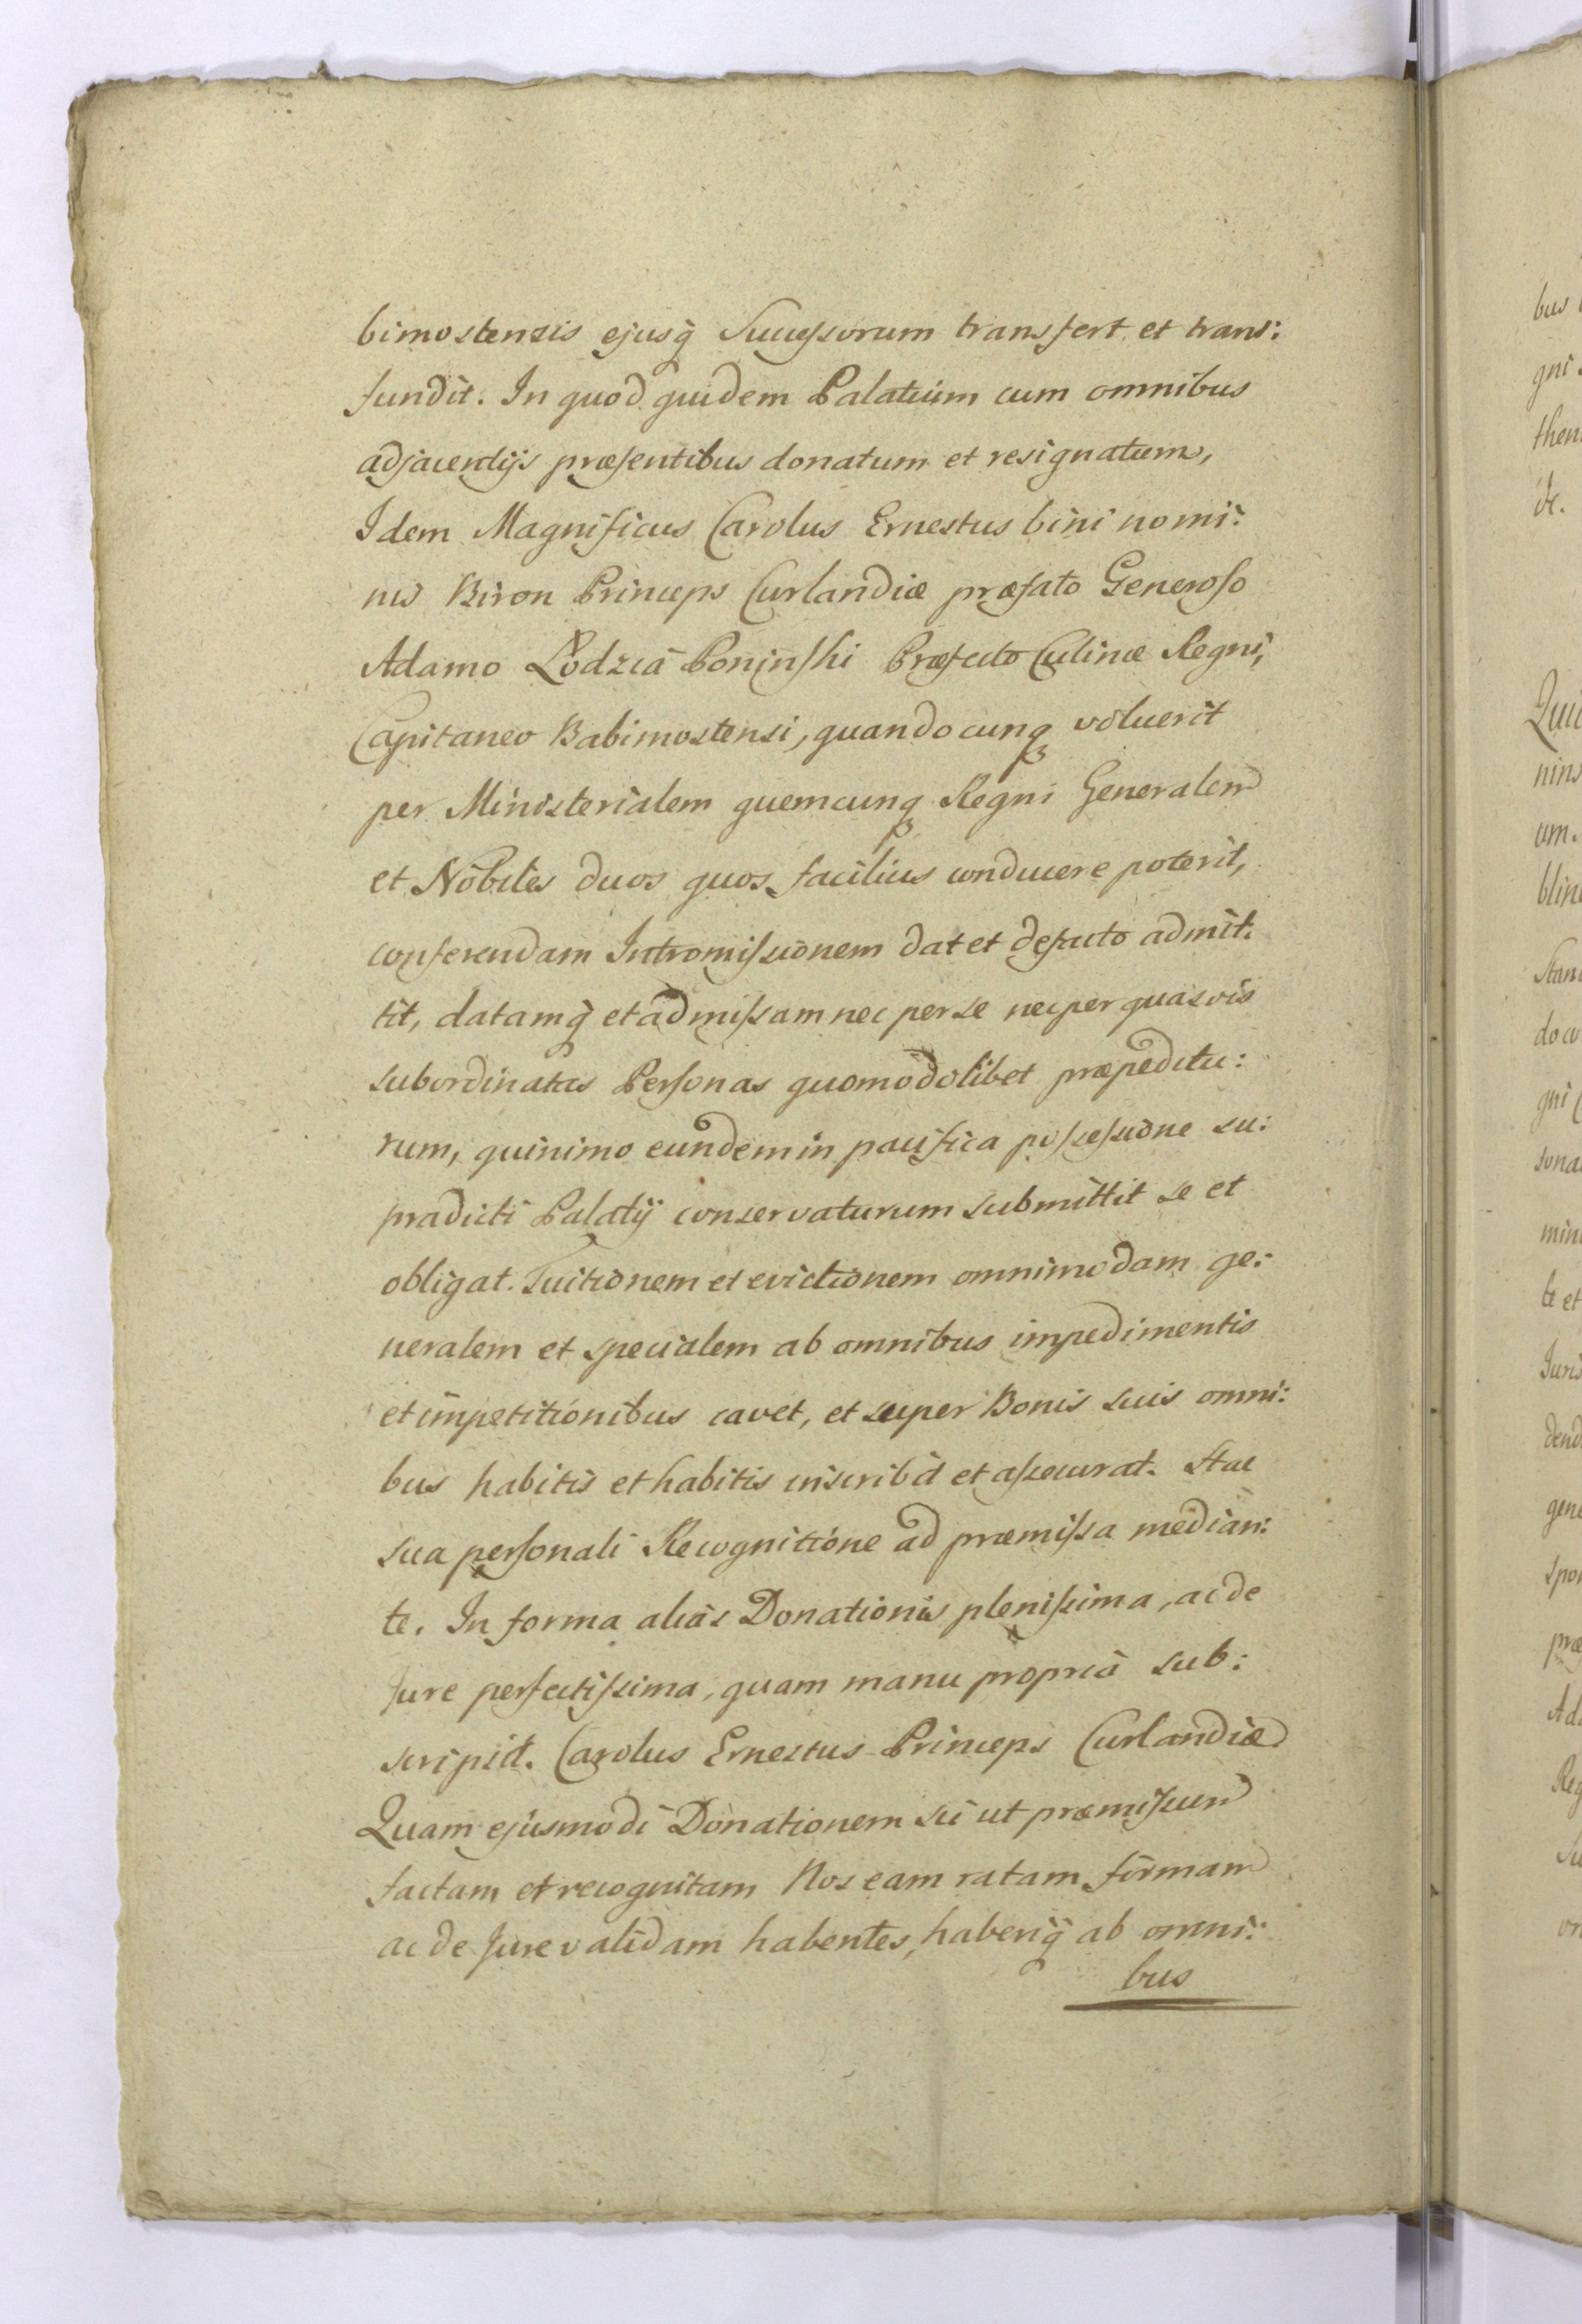 bimostensis ejusq̃ Successorum transfert et trans:
fundit. In quod quidem Palatium cum omnibus
adjacentijs præsentibus donatum et resignatum,
Idem Magnificus Carolus Ernestus bini nomi:
nis Biron Princeps Curlandiæ præfato Generoso
Adamo Lodzia Poninski Præfecto Culinæ Regni,
Capitaneo Babimostensi, quandocunq voluerit
per Ministerialem quemcunq Regni Generalem
et Nobiles duos quos facilius conducere poterit,
conferendam Intromissionem dat et defacto admit:
tit, datamq̃ et admissam nec per se nec per quasvis
subordinatas Personas quomodolibet præpeditu:
rum, quinimo eundem in pacifica possessione su:
pradicti Palatij conservaturum submittit se et
obligat. Tuitionem et evictionem omnimodam ge:
neralem et specialem ab omnibus impedimentis
et impetitionibus cavet, et super Bonis suis omni:
bus habitis et habitis inscribit et assecurat. Hac
sua personali Recognitione ad præmissa median:
te. In forma aliàs Donationis plenissima, ac de
Jure perfectissima, quam manu propriâ sub:
scripsit. Carolus Ernestus Princeps Curlandiæ
Quam ejusmodi Donationem sic ut præmissum
factam et recognitam Nos eam ratam firmam
ac de Jure validam habentes, haberiq̃ ab omni:
bus
bus
gni
then
do cu
gni
mini
te et
Juris
dend
gene
spon
præ